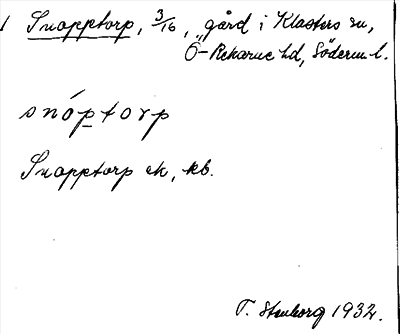 1 Snopptorp, 3/16, gård i Klosters sn,
Ö-Rekarne hd, Söderm l.
snóptorp
Snopptorp ek, kb.
T. Stenborg 1932.